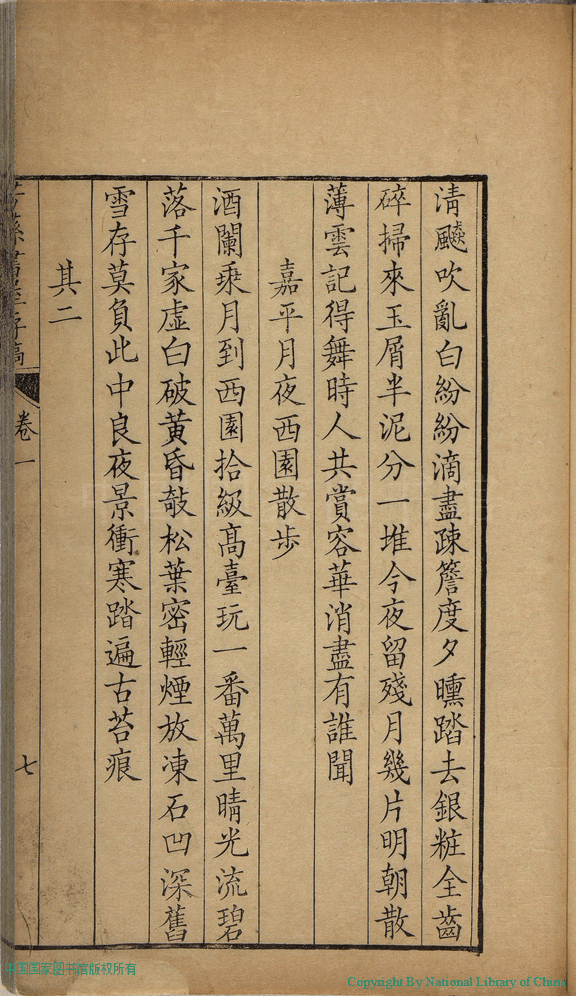 清飈吹亂白紛紛滴盡疎簷度夕曛踏去銀粧全齒
碎掃來玉屑半泥分一堆今夜留殘月幾片明朝散
薄雲記得舞時人共賞容華消盡有誰聞
嘉平月夜西園散步
酒闌乗月到西園拾級髙臺玩一番萬里晴光流碧
落千家虛白破黃昏敲松葉密輕煙放凍石凹深舊
雪存莫負此中良夜景衝寒踏遍古苔痕
其二
卷一
七
中国国家图书馆版权所有
Copyright By National Library of China